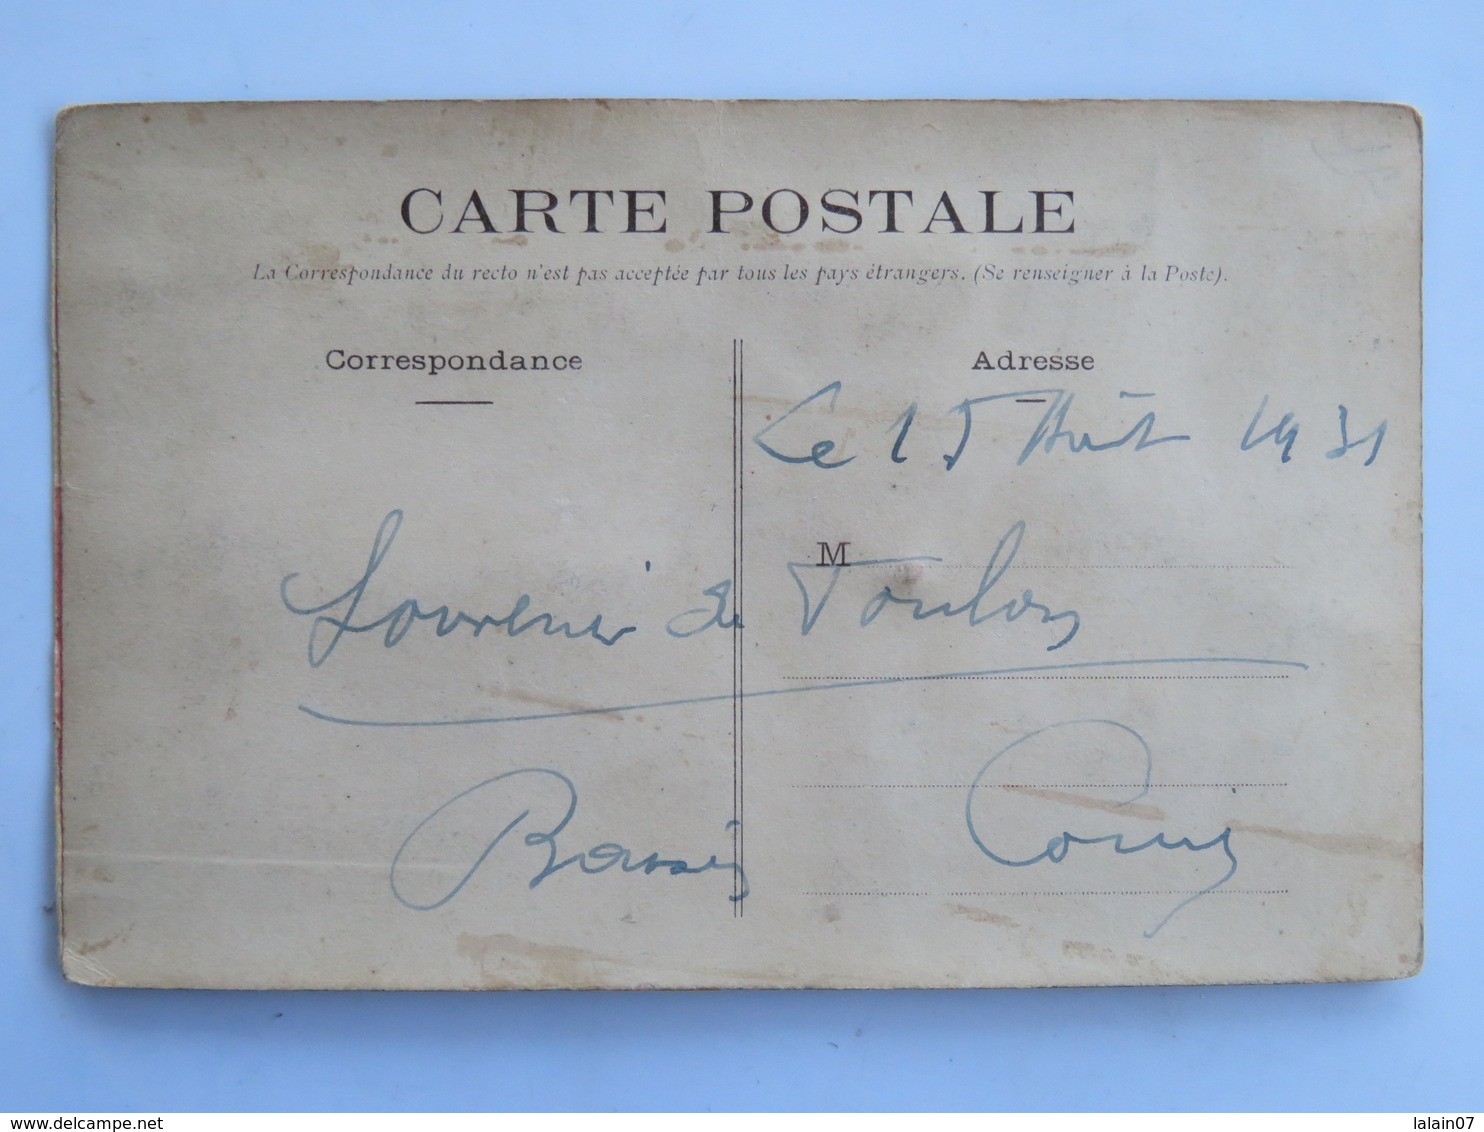 CARTE POSTALE
La Correspondance du recto n'est pas acceptée par tous les pays étrangers. (Se renseigner à la Poste).
Correspondance
Adresse
Le 15 Août 1931
M
Souvenir de Toulon
www.delcampe.net
lalain07